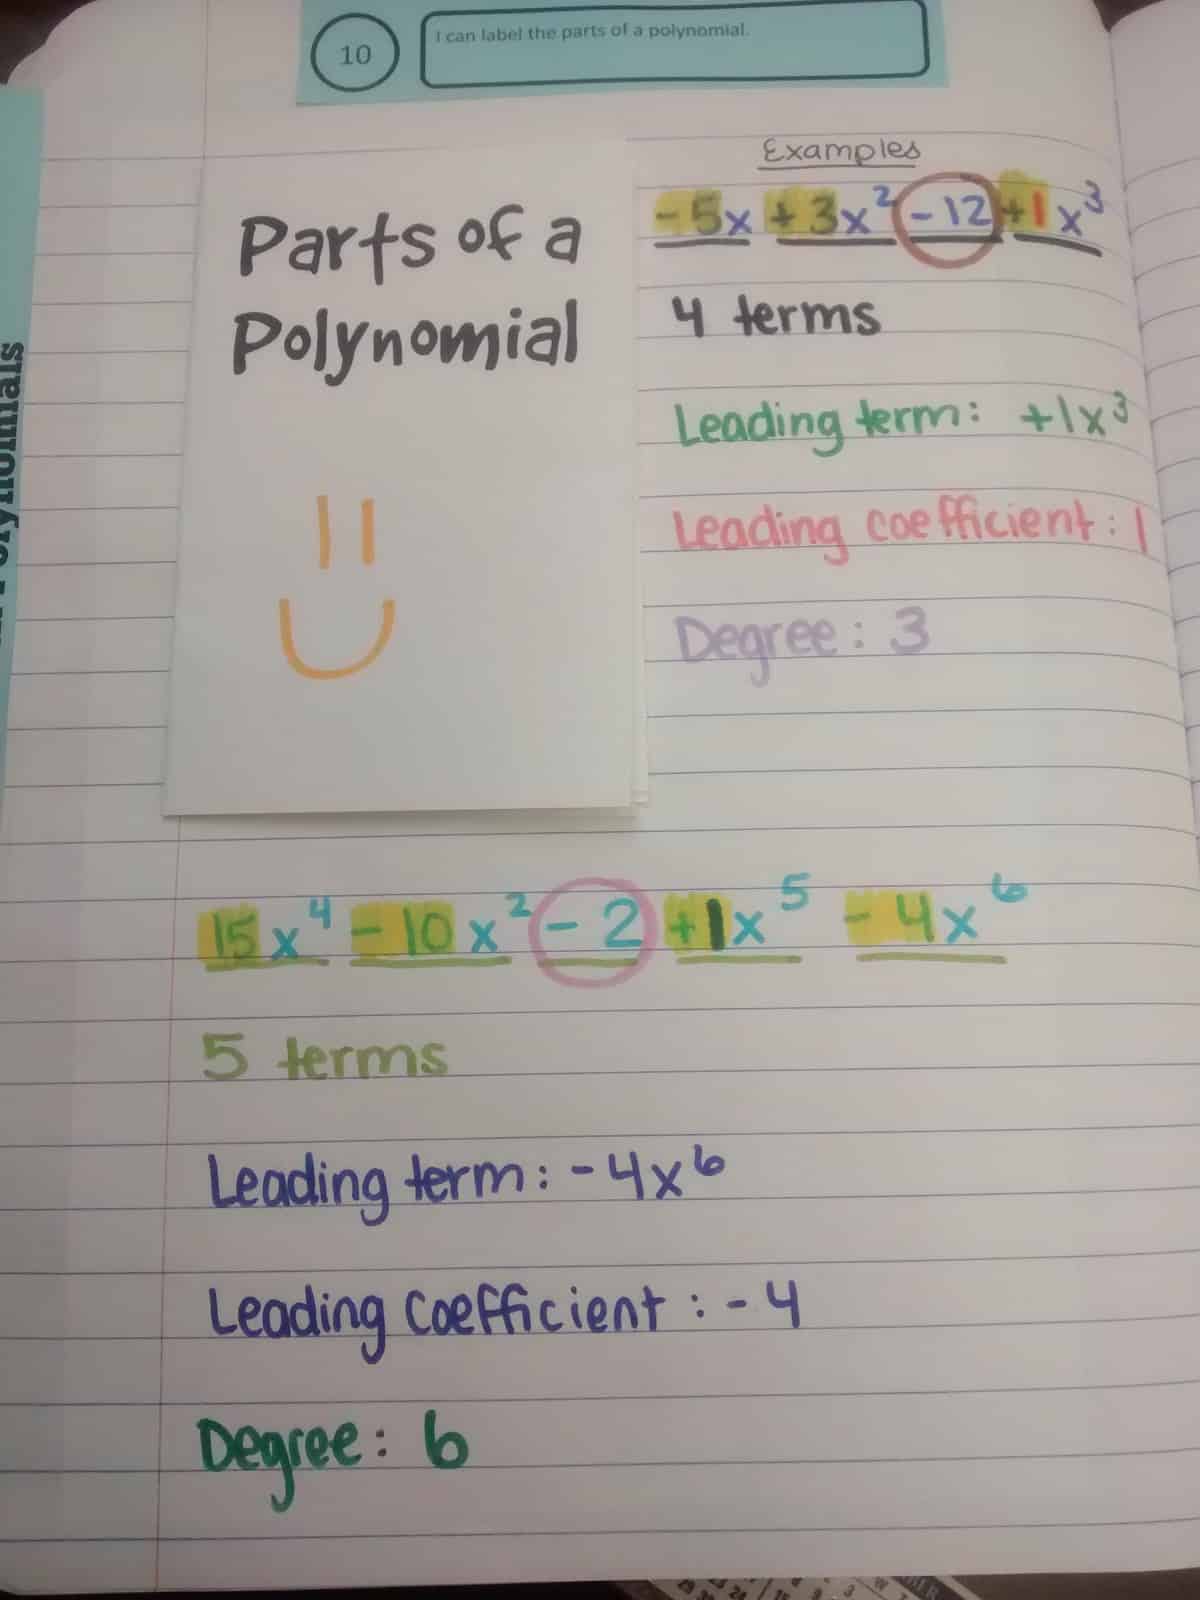 10
I can label the parts of a polynomial.
Parts of a
Polynomial
Examples
-5x +3x² -12 +1x³
4 terms
Leading term: +1x³
Leading coefficient: 1
Degree: 3
15x⁴ -10x² -2 +1x⁵ -4x⁶
5 terms
Leading term: -4x⁶
Leading coefficient: -4
Degree: 6